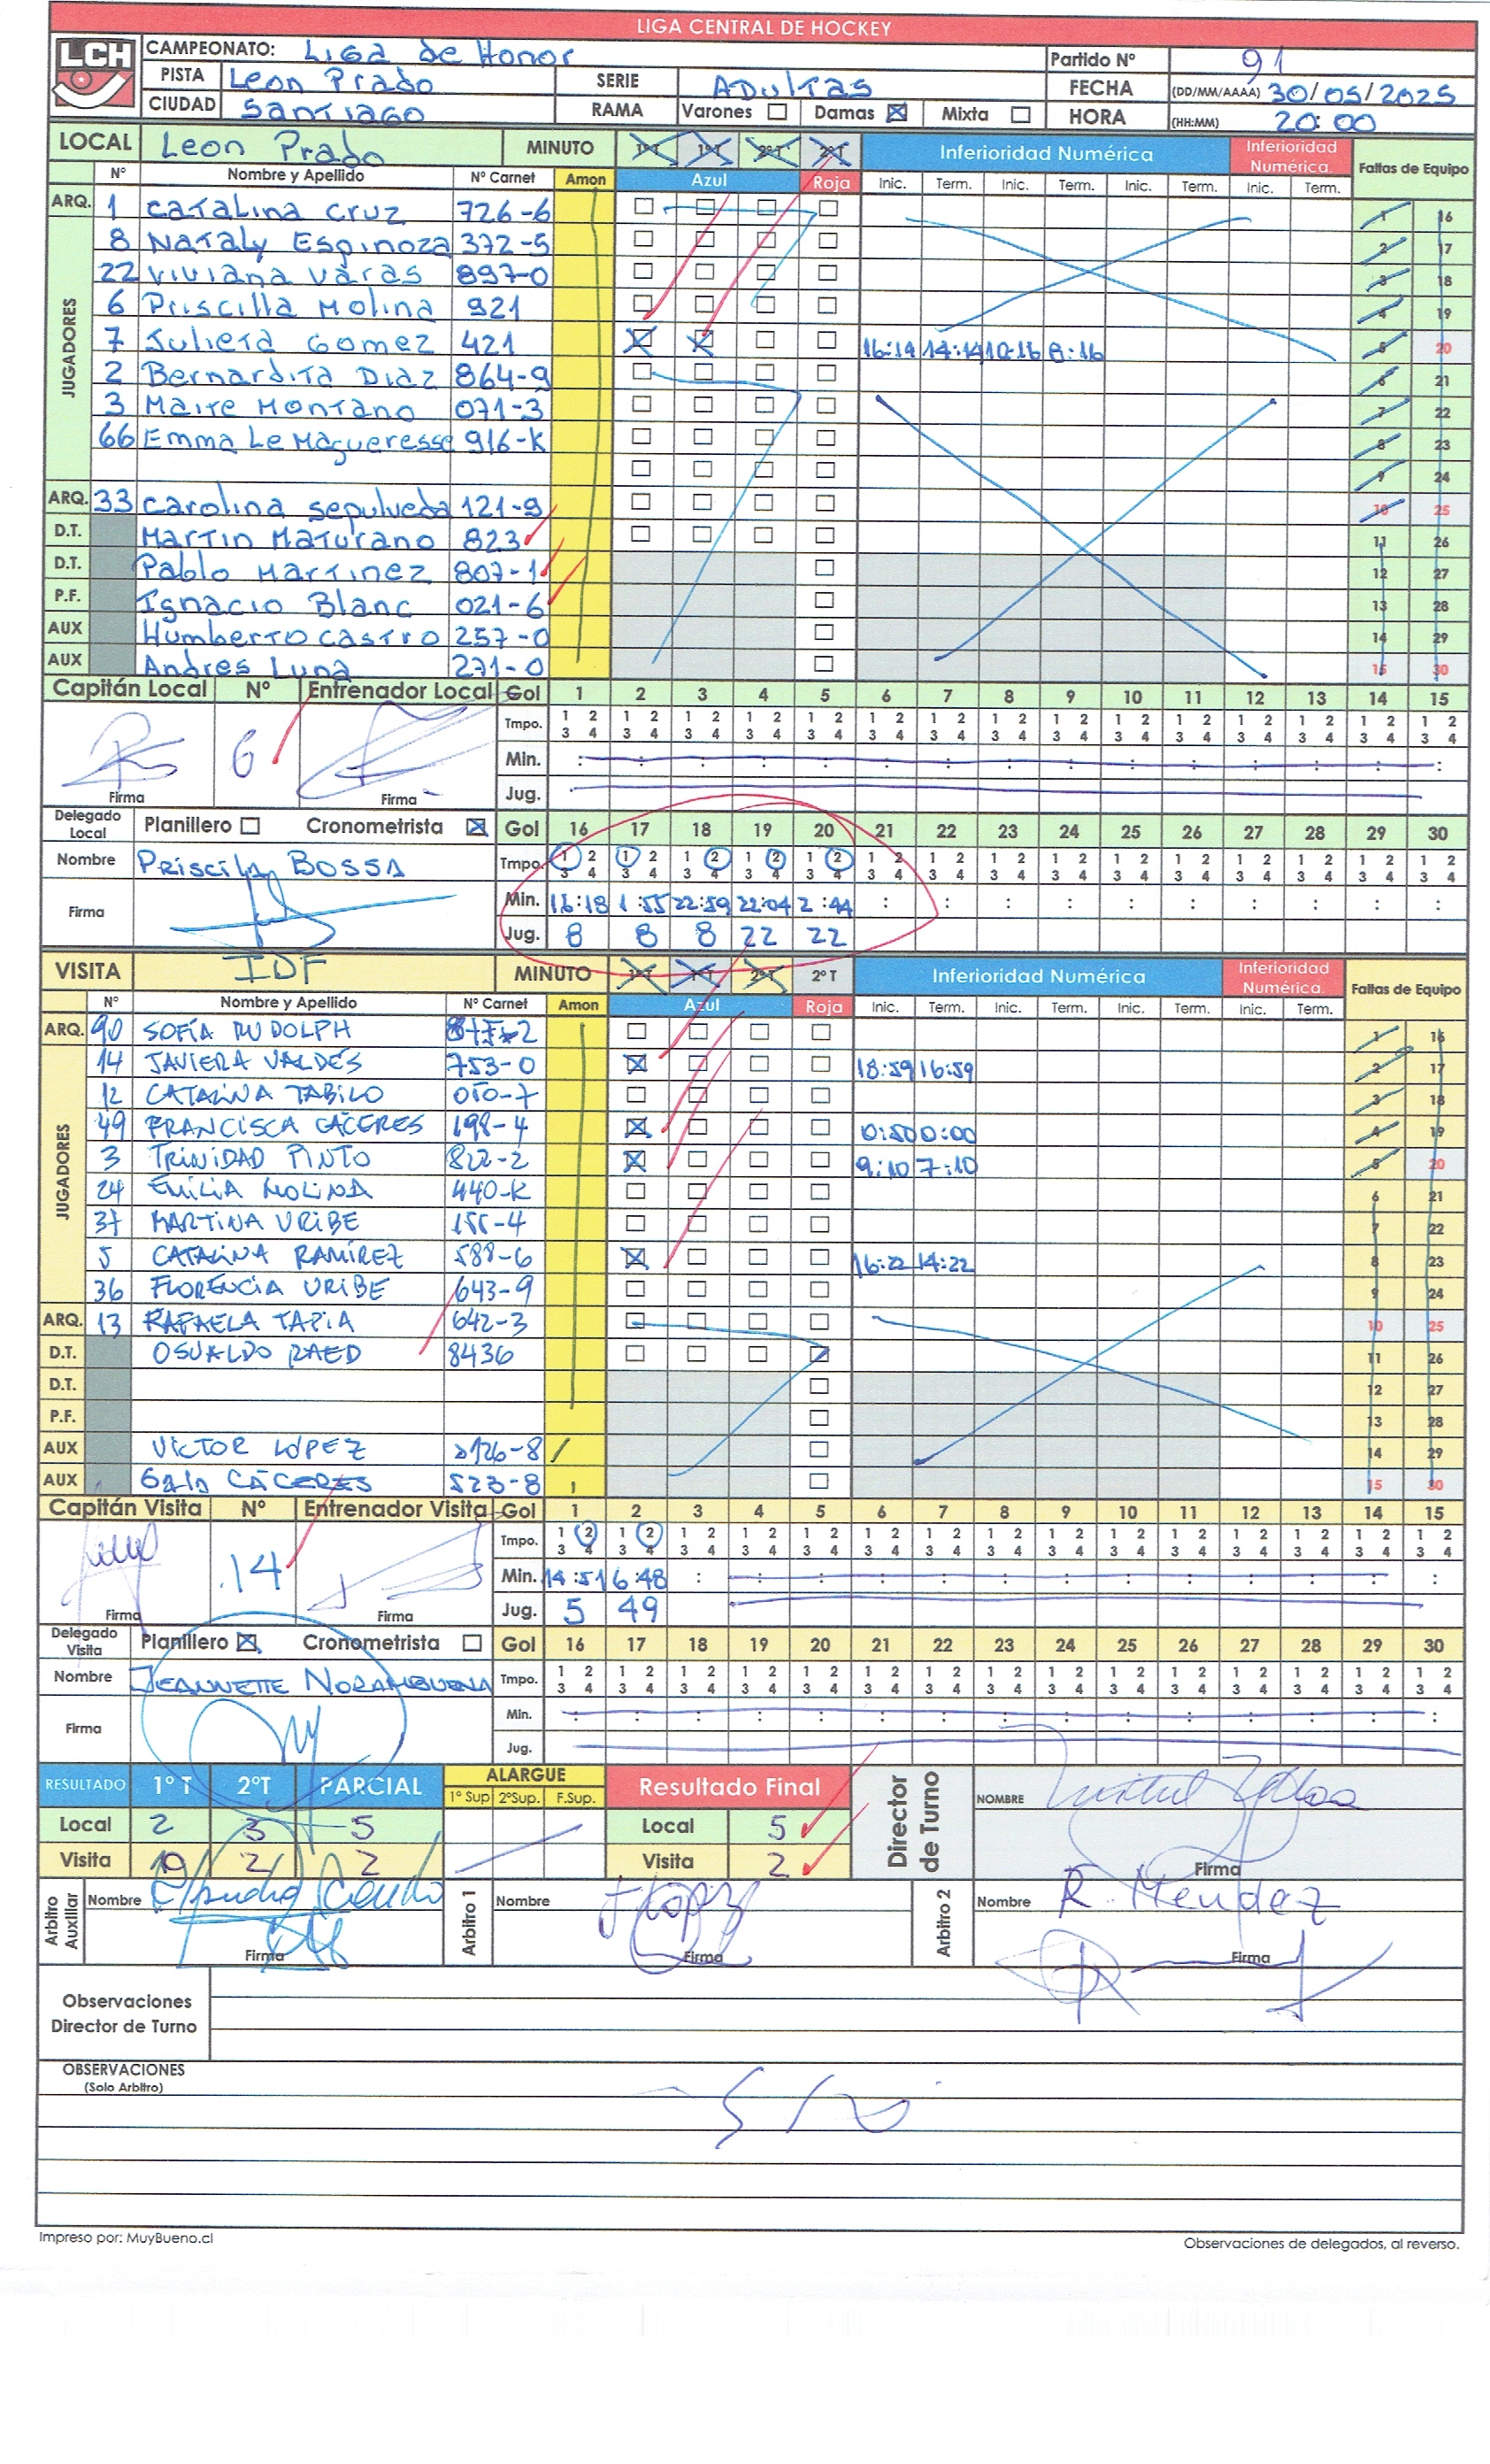 LIGA CENTRAL DE HOCKEY
LCH
CAMPEONATO: LIGA de Honor Partido Nº 91
PISTA Leon Prado SERIE ADULTAS FECHA (DD/MM/AAAA) 30/05/2025
CIUDAD SANTIAGO RAMA Varones Damas Mixta HORA (HH:MM) 20:00
LOCAL Leon Prado MINUTO 1º T 1º T 2º T 2º T Inferioridad Numérica Inferioridad Numérica Faltas de Equipo
Nº Nombre y Apellido Nº Carnet Amon Azul Roja Inic. Term. Inic. Term. Inic. Term. Inic. Term.
ARQ. 1 Catalina Cruz 726-6 1 16
JUGADORES
8 Nataly Espinoza 372-5 2 17
22 Viviana Varas 897-0 3 18
6 Priscilla Molina 921 4 19
7 Julieta Gomez 421 16:14 14:14 10:16 8:16 5 20
2 Bernardita Diaz 864-9 6 21
3 Maite Montano 071-3 7 22
66 Emma Le Magueresse 916-K 8 23
9 24
ARQ. 33 Carolina Sepulveda 121-9 10 25
D.T. Martin Maturano 823 11 26
D.T. Pablo Martinez 807-1 12 27
P.F. Ignacio Blanc 021-6 13 28
AUX Humberto Castro 257-0 14 29
AUX Andres Luna 271-0 15 30
Capitán Local Nº Entrenador Local Gol 1 2 3 4 5 6 7 8 9 10 11 12 13 14 15
Tmpo. 1 2 3 4 1 2 3 4 1 2 3 4 1 2 3 4 1 2 3 4 1 2 3 4 1 2 3 4 1 2 3 4 1 2 3 4 1 2 3 4 1 2 3 4 1 2 3 4 1 2 3 4 1 2 3 4 1 2 3 4
6 Min.
Firma Firma Jug.
Delegado Local Planillero Cronometrista Gol 16 17 18 19 20 21 22 23 24 25 26 27 28 29 30
Nombre Priscila BOSSA Tmpo. 1 2 3 4 1 2 3 4 1 2 3 4 1 2 3 4 1 2 3 4 1 2 3 4 1 2 3 4 1 2 3 4 1 2 3 4 1 2 3 4 1 2 3 4 1 2 3 4 1 2 3 4 1 2 3 4 1 2 3 4
Firma Min. 16:18 1:55 22:59 22:04 2:44
Jug. 8 8 8 22 22
VISITA IDF MINUTO 1º T 1º T 2º T 2º T Inferioridad Numérica Inferioridad Numérica. Faltas de Equipo
Nº Nombre y Apellido Nº Carnet Amon Azul Roja Inic. Term. Inic. Term. Inic. Term. Inic. Term.
ARQ. 90 SOFÍA RUDOLPH 1 16
JUGADORES
14 JAVIERA VALDÉS 753-0 18:59 16:59 2 17
12 CATALINA TABILO 010-7 3 18
49 FRANCISCA CÁCERES 198-4 0:50 0:00 4 19
3 TRINIDAD PINTO 822-2 9:10 7:10 5 20
24 EMILIA MOLINA 440-K 6 21
37 MARTINA URIBE 155-4 7 22
5 CATALINA RAMÍREZ 588-6 16:22 14:22 8 23
36 FLORENCIA URIBE 643-9 9 24
ARQ. 13 RAFAELA TAPIA 642-3 10 25
D.T. OSVALDO RAED 8436 11 26
D.T. 12 27
P.F. 13 28
AUX VICTOR LÓPEZ 14 29
AUX CÁCERES 523-8 15 30
Capitán Visita Nº Entrenador Visita Gol 1 2 3 4 5 6 7 8 9 10 11 12 13 14 15
Tmpo. 1 2 3 4 1 2 3 4 1 2 3 4 1 2 3 4 1 2 3 4 1 2 3 4 1 2 3 4 1 2 3 4 1 2 3 4 1 2 3 4 1 2 3 4 1 2 3 4 1 2 3 4 1 2 3 4 1 2 3 4
14 Min. 14:51 6:48
Firma Firma Jug. 5 49
Delegado Visita Planillero Cronometrista Gol 16 17 18 19 20 21 22 23 24 25 26 27 28 29 30
Nombre JEANNETTE NORAMBUENA Tmpo. 1 2 3 4 1 2 3 4 1 2 3 4 1 2 3 4 1 2 3 4 1 2 3 4 1 2 3 4 1 2 3 4 1 2 3 4 1 2 3 4 1 2 3 4 1 2 3 4 1 2 3 4 1 2 3 4 1 2 3 4
Firma Min.
Jug.
RESULTADO 1º T 2ºT PARCIAL ALARGUE Resultado Final Director de Turno NOMBRE
1º Sup 2ºSup. F.Sup.
Local 2 3 5 Local 5
Visita 2 2 Visita 2 Firma
Arbitro Auxiliar Nombre Arbitro 1 Nombre J Lopez Arbitro 2 Nombre R. Mendez
Firma Firma Firma
Observaciones
Director de Turno
OBSERVACIONES
(Solo Arbitro)
Impreso por: MuyBueno.cl Observaciones de delegados, al reverso.